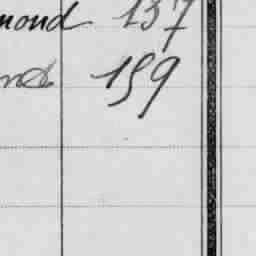 mond 137
159